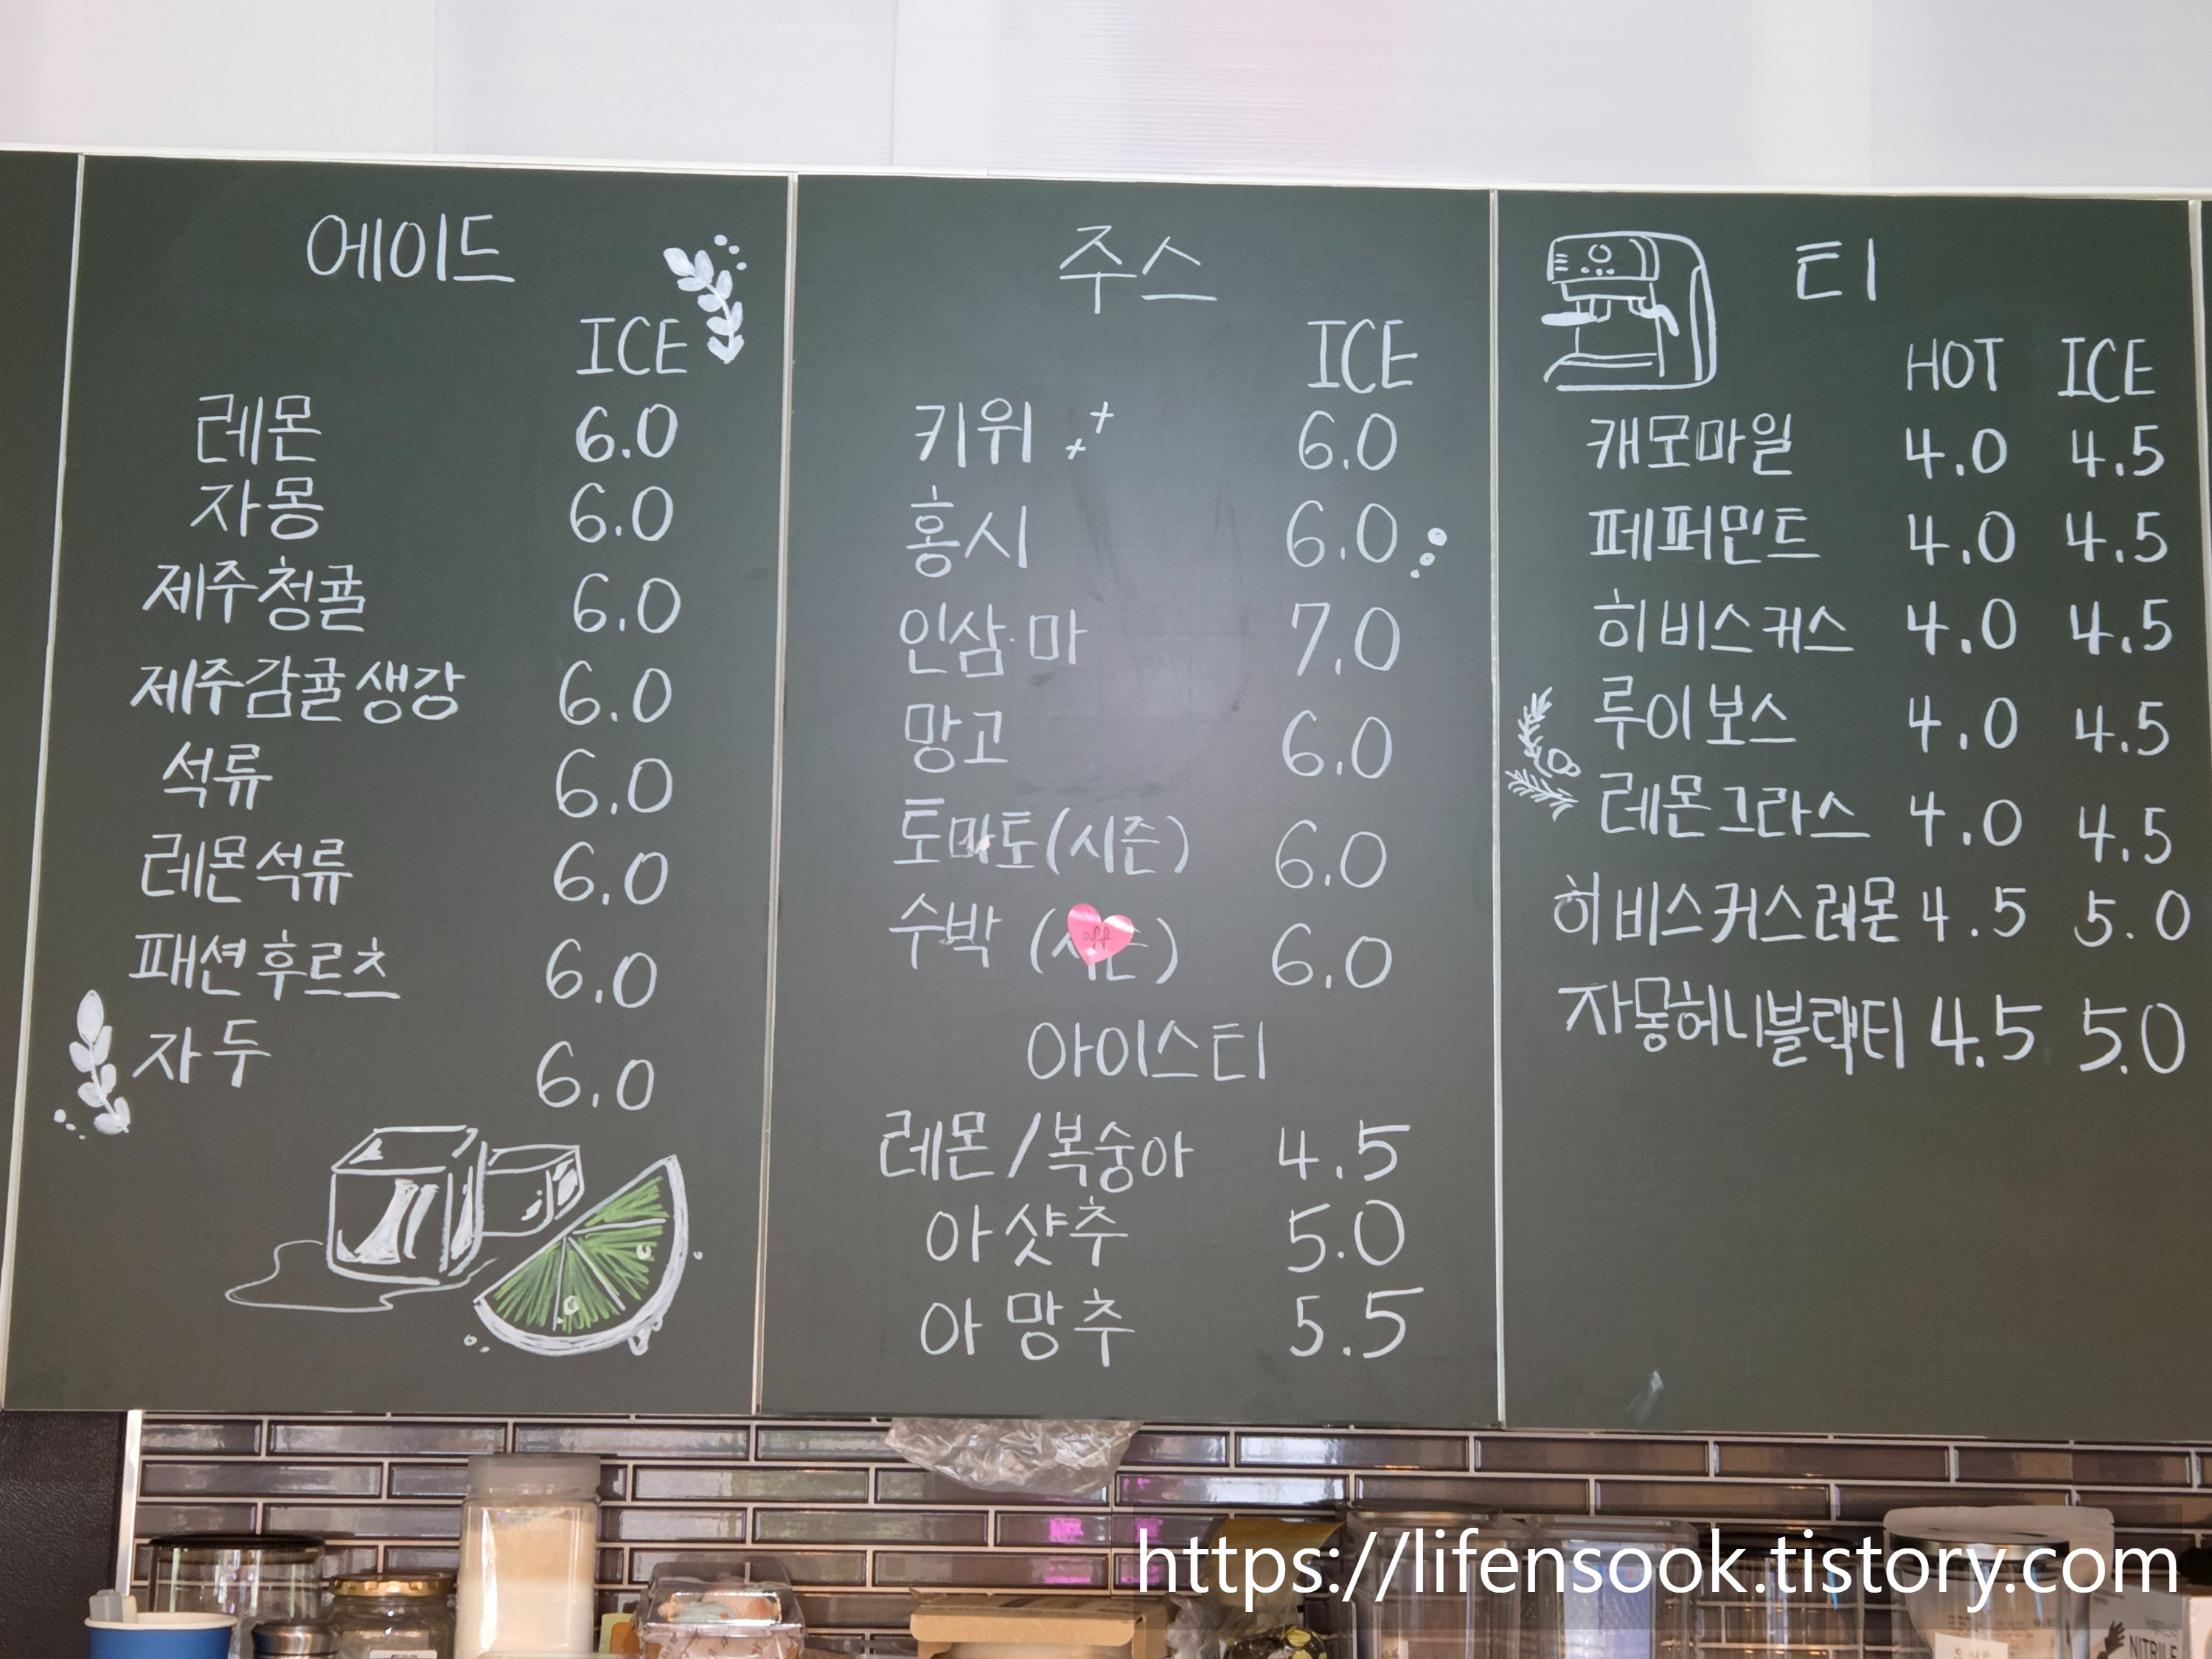 에이드
ICE
레몬 6.0
자몽 6.0
제주청귤 6.0
제주감귤생강 6.0
석류 6.0
레몬석류 6.0
패션후르츠 6.0
자두 6.0
주스
ICE
키위 6.0
홍시 6.0
인삼·마 7.0
망고 6.0
토마토(시즌) 6.0
수박 (시즌) 6.0
off
아이스티
레몬/복숭아 4.5
아샷추 5.0
아망추 5.5
티
HOT ICE
캐모마일 4.0 4.5
페퍼민트 4.0 4.5
히비스커스 4.0 4.5
루이보스 4.0 4.5
레몬그라스 4.0 4.5
히비스커스레몬 4.5 5.0
자몽허니블랙티 4.5 5.0
https://lifensook.tistory.com
NITRILE